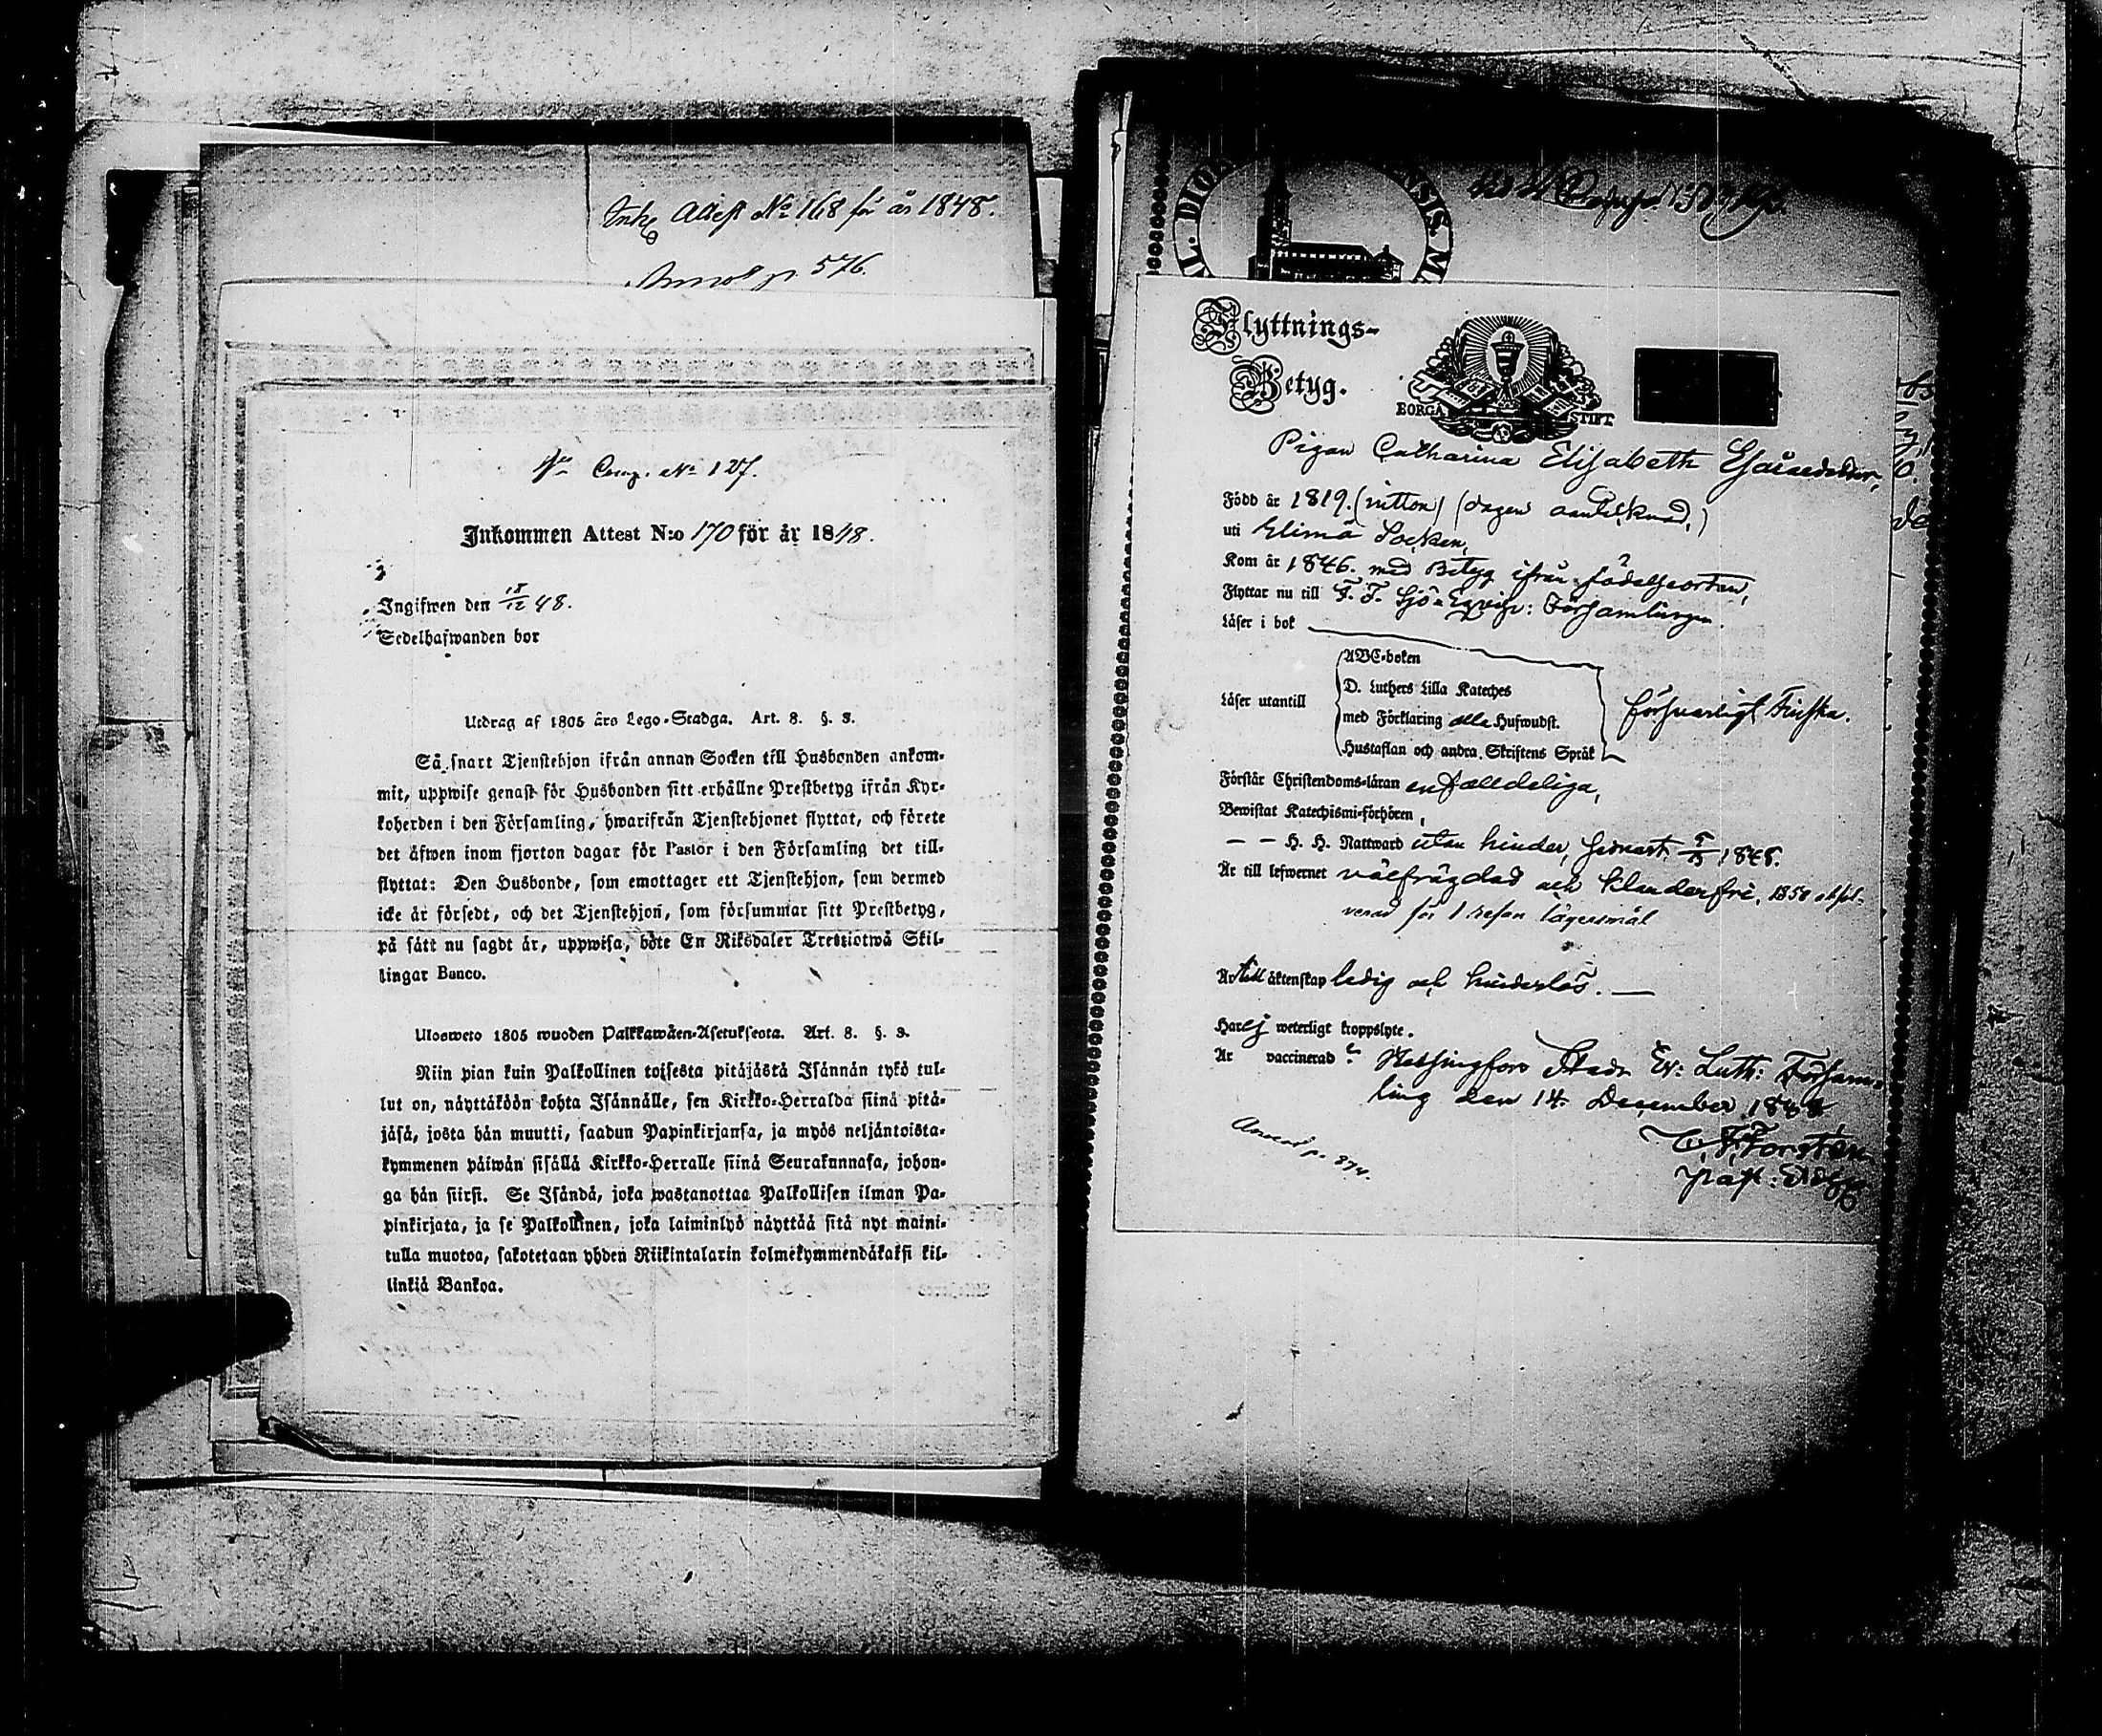 Ink. Attest No 168 för år 1848.
Annot p. 576.
Comp. No 127.
Inkommen Attest N:o 170 för år 1848.
Ingifwen den 18/12 48.
Sedelhafwanden bor
Utdrag af 1805 års Lego-Stadga. Art. 8. §. 3.
Så snart Tjenstehjon ifrån annan Socken till Husbonden ankom-
mit, uppwise genast för Husbonden sitt erhållne Prestbetyg ifrån Kyr-
koherden i den Församling, hwarifrån Tjenstehjonet flyttat, och förete
det äfwen inom fjorton dagar för Pastor i den Församling det till-
flyttat: Den Husbonde, som emottager ett Tjenstehjon, som dermed
icke är försedt, och det Tjenstehjon, som försummar sitt Prestbetyg,
på sätt nu sagdt är, uppwisa, böte En Riksdaler Trettiotwå Skil-
lingar Banco.
Ulosweto 1805 wuoden Palkkawäen-Asetuksesta. Art. 8. §. 3.
Niin pian kuin Palkollinen toisesta pitäjästä Isännän tykö tul-
lut on, näyttäköön kohta Isännälle, sen Kirkko-Herralda siinä pitä-
jäsä, josta hän muutti, saadun Papinkirjansa, ja myös neljäntoista-
kymmenen päiwän sisällä Kirkko-Herralle siinä Seurakunnasa, johon-
ga hän siirsi. Se Isändä, joka wastanottaa Palkollisen ilman Pa-
pinkirjata, ja se Palkollinen, joka laiminlyö näyttää sitä nyt maini-
tulla muotoa, sakotetaan yhden Riikintalarin kolmekymmendäkaksi kil-
linkiä Bankoa.
Flyttnings-
Betyg.
BORGÅ STIFT
Pigan Catharina Elisabeth
Född år 1819. (nitton) (dagen
uti Elimä Socken,
Kom år 1846. med Betyg ifrån födelseorten,
Flyttar nu till F. F. Sjö-Eqvip: Församlingen.
Läser i bok
Läser utantill
ABC-boken
D. Luthers Lilla Kateches
med Förklaring alla Hufwudst.
Hustaflan och andra Skriftens Språk
försvarligt Finska.
Förstår Christendoms-läran enfalldeliga,
Bewistat Katechismi-förhören,
— — H. H. Nattward utan hinder, senast 1848.
Är till lefwernet välfrägdad och klanderfri,
för 1 resan lägersmål
Är till äktenskap ledig och hinderlös. —
Har ej weterligt kroppslyte.
Är vaccinerad Helsingfors Stads Ev: Luth: Församl-
ling den 14 December 1848
C. F. Forstén
Past: Adj.
Annot p. 874.